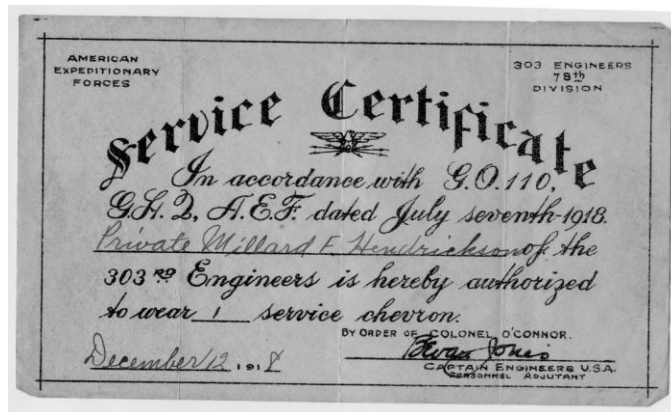 AMERICAN
EXPEDITIONARY
FORCES
303 ENGINEERS
78th
DIVISION
Service Certificate
In accordance with G.O.110,
G.H.Q, A.E.F. dated July seventh-1918.
Private Millard F. Hendrickson of the
303RD Engineers is hereby authorized
to wear 1 service chevron.
BY ORDER OF COLONEL O'CONNOR.
December 12 1918
Evan Jones
CAPTAIN ENGINEERS U.S.A.
PERSONNEL ADJUTANT